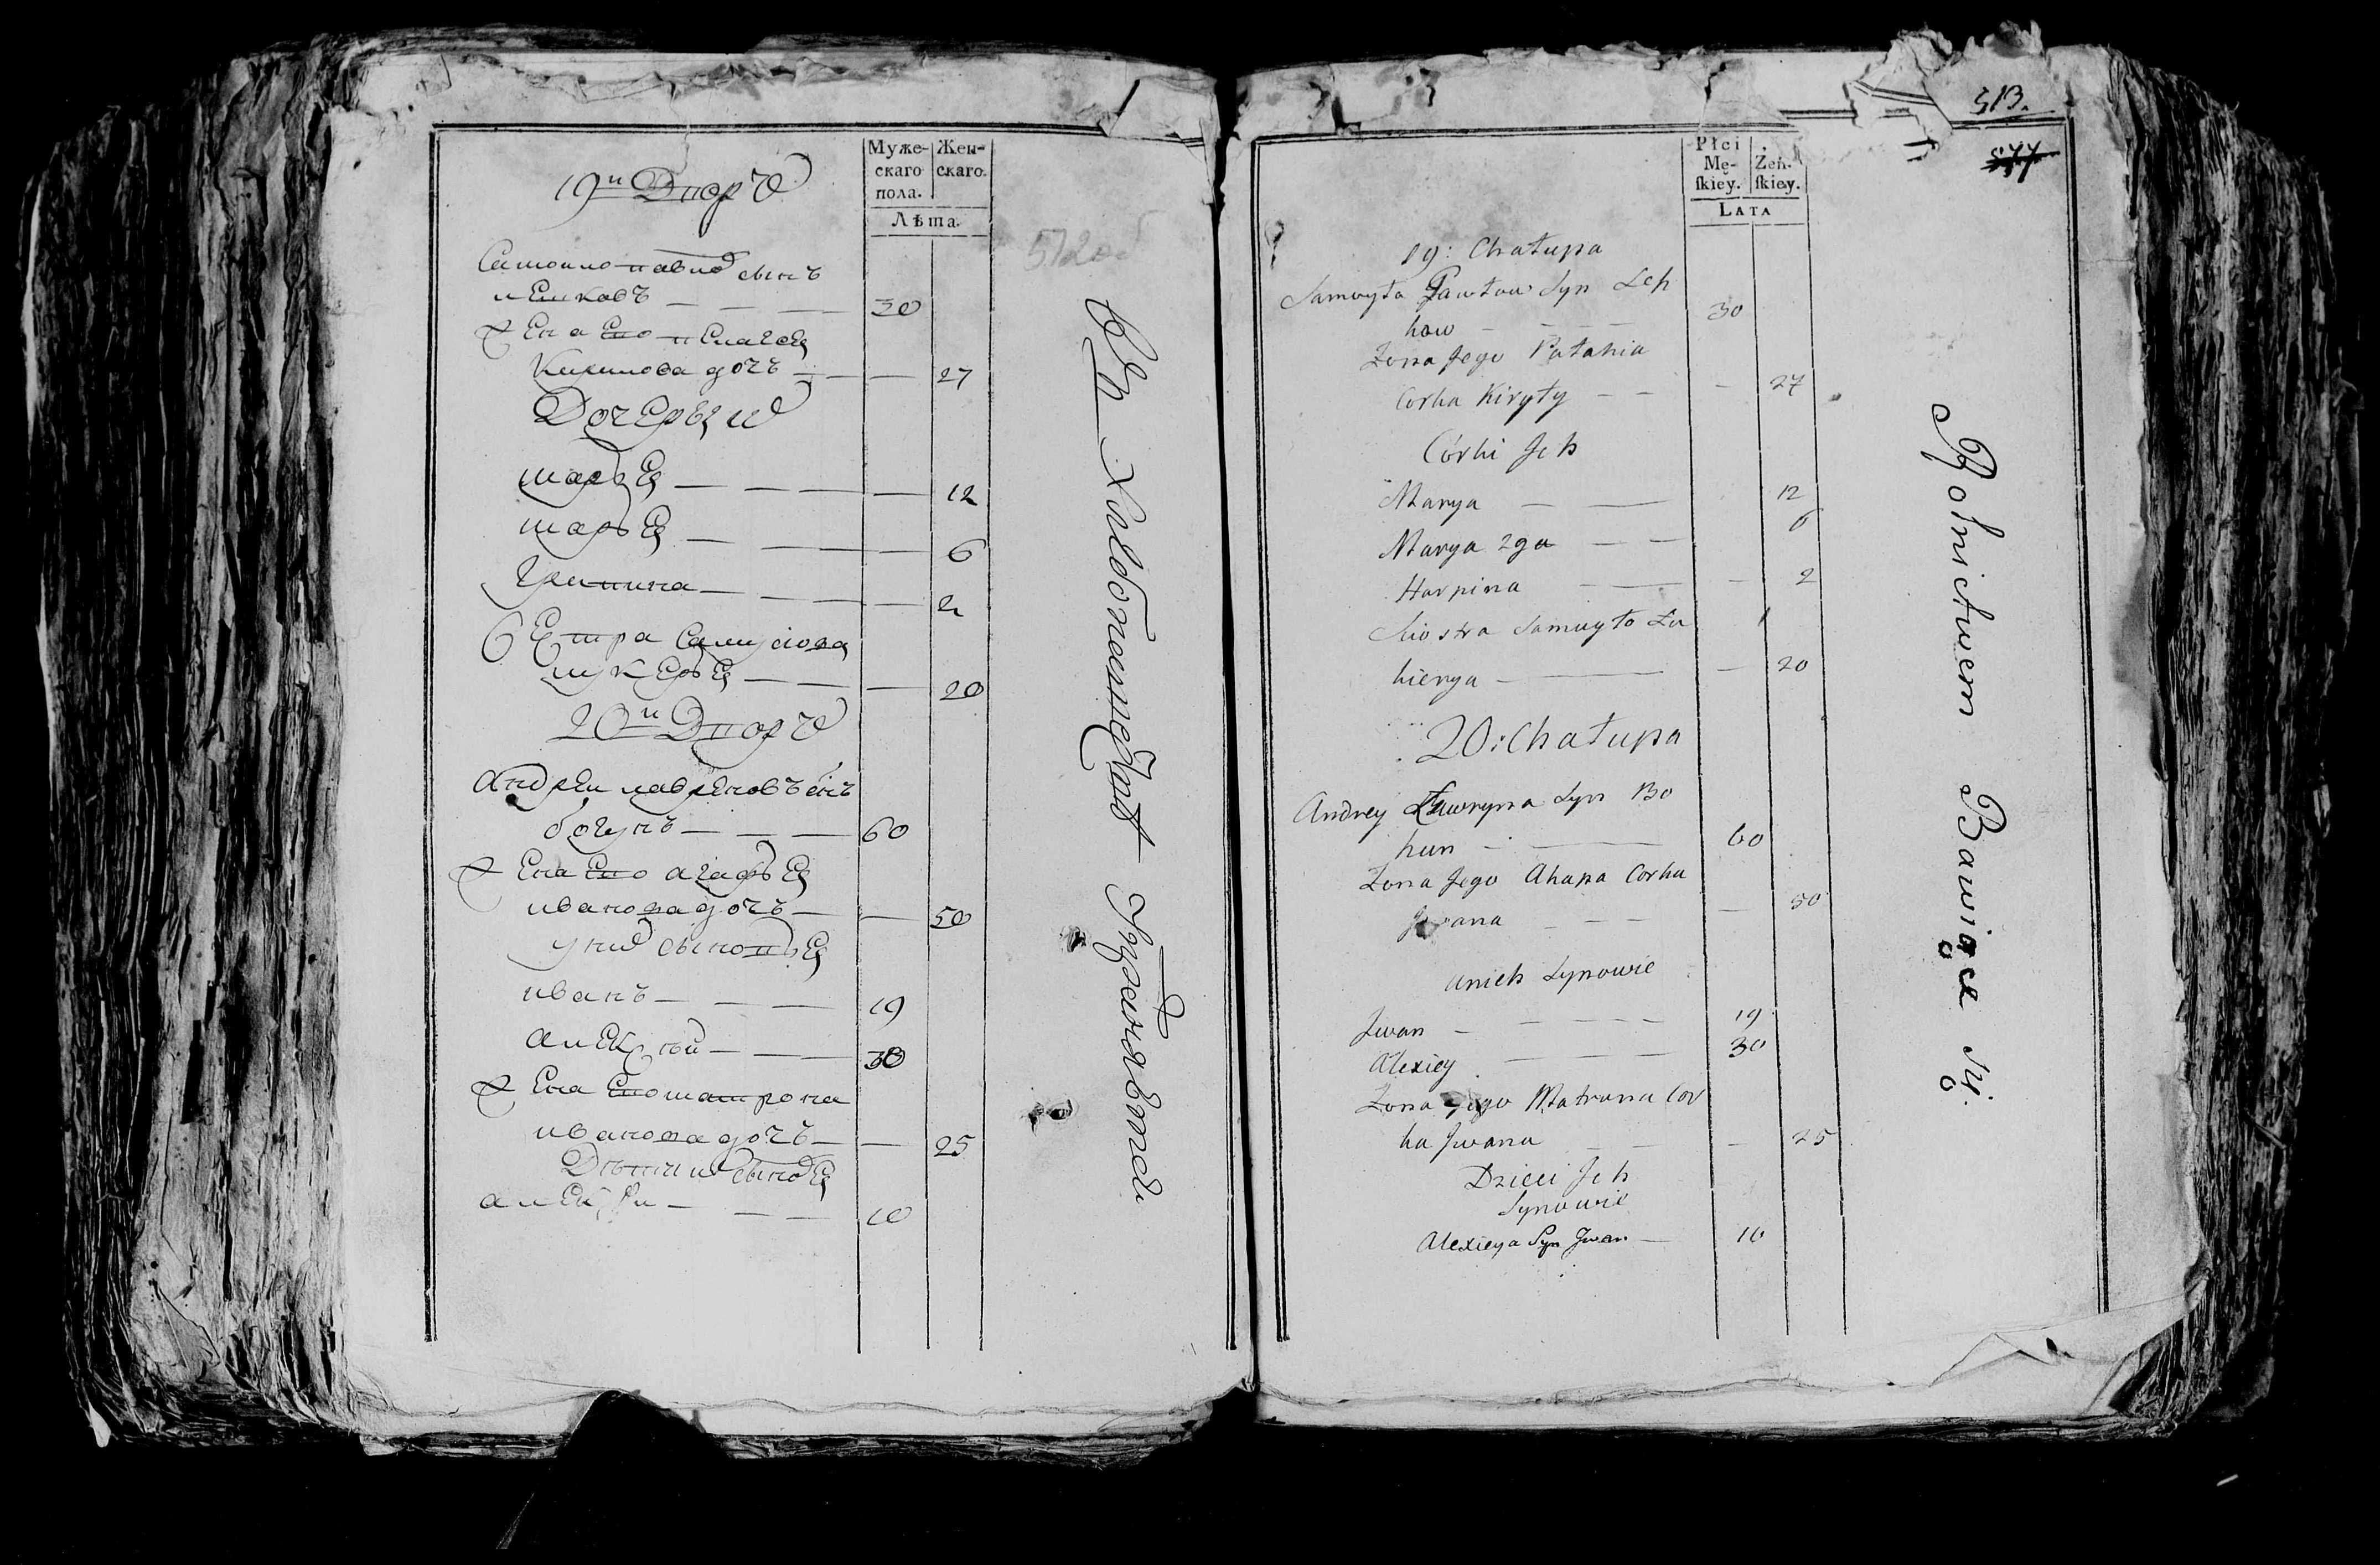 Муже-
скаго
пола.
Жен-
скаго.
Лѣта.
19й Дворъ
Самоило павло сынъ
лешковъ — — — 30
Жена Его пелагея
Кирилова дочь — — 27
Дочеры
марья — — — 12
марья — — — 6
— — — 2
Сестра
лукерья — — — 20
20й Дворъ
Андреи лавреновъ сынъ
богунъ — — — 60
Жена Его агафья
иванова дочь — — 50
у них сыновья
иванъ — — — 19
алексѣй — — — 30
Жена Его матрона
иванова дочь — — 25
Дѣти их сыновя
— — — 10
512об
513.
577
Płci
Mę-
ſkiey.
Żeń-
ſkiey.
LATA
19: Chałupa
Samoyło Pawłow Syn Leh
kow — — — 30
Zona Jego Pałahia
Corka Kiryły — — 27
Córki Jch
Marya — — 12
Marya 2ga — — 6
Harpina — — 2
Siostra Samoyło Łu
kierya — — 20
20: Chałupa
Andrey Ławryna Syn Bo
hun — — 60
Zona Jego Ahapa Corka
Jwana — — 50
Unich Synowie
Jwan — — — 19
Alexiey — — — 30
Zona Jego Matrona Cor
ka Jwana — — 25
Dzieci Jch
Synowie
Alexieya Syn Jwan — 10
Rolnictwem Bawiące Się